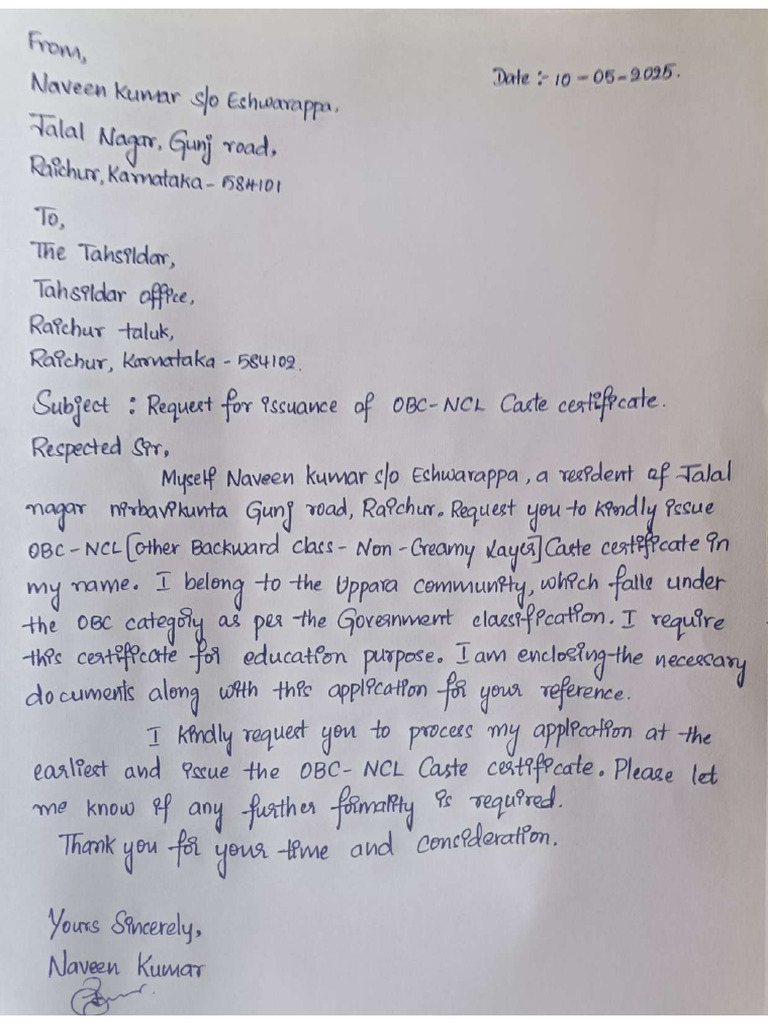 From,
Date :- 10-05-2025.
Naveen Kumar s/o Eshwarappa.
Jalal Nagar, Gunj road,
Raichur, Karnataka - 584101
To,
The Tahsildar,
Tahsildar office,
Raichur taluk,
Raichur, Karnataka - 584102.
Subject : Request for issuance of OBC-NCL Caste certificate.
Respected Sir,
Myself Naveen Kumar s/o Eshwarappa, a resident of Jalal
nagar nirbavikunta Gunj road, Raichur. Request you to kindly issue
OBC-NCL [other Backward class - Non-Creamy Layer] Caste certificate in
my name. I belong to the Uppara community, which falls under
the OBC category as per the Government classification. I require
this certificate for education purpose. I am enclosing the necessary
documents along with this application for your reference.
I kindly request you to process my application at the
earliest and issue the OBC-NCL Caste certificate. Please let
me know if any further formality is required.
Thank you for your time and consideration.
Yours Sincerely,
Naveen Kumar